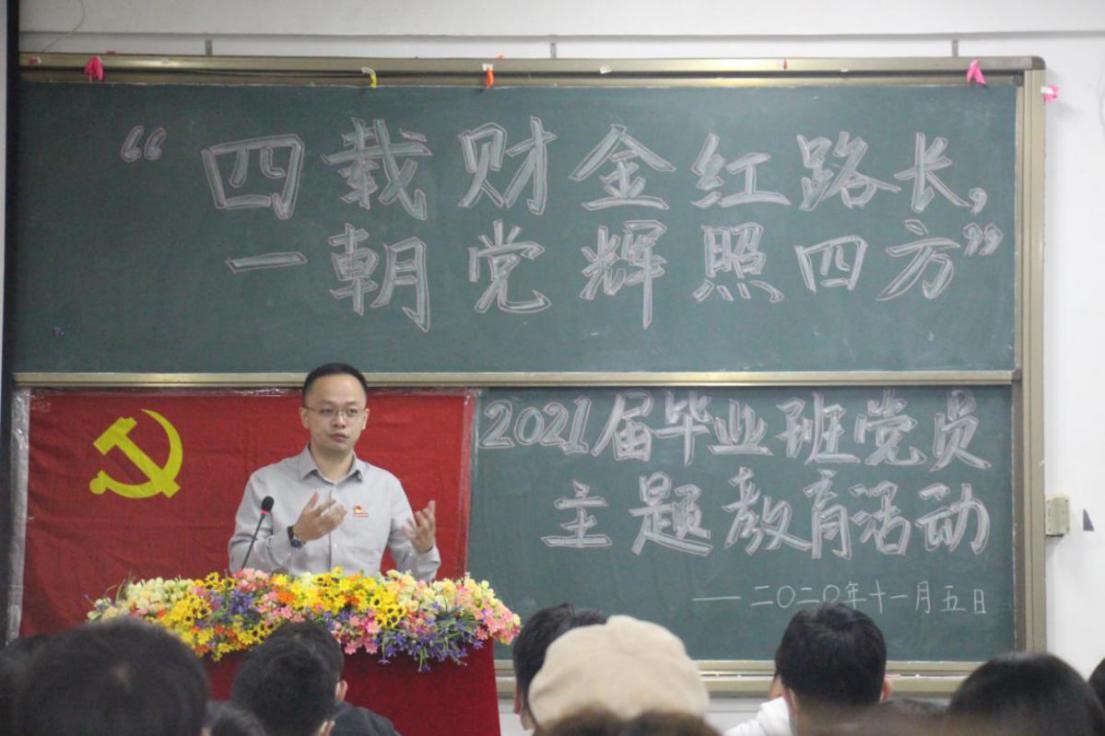 “四载财金红路长，
一朝党辉照四方”
2021届毕业班党员
主题教育活动
——二〇二〇年十一月五日